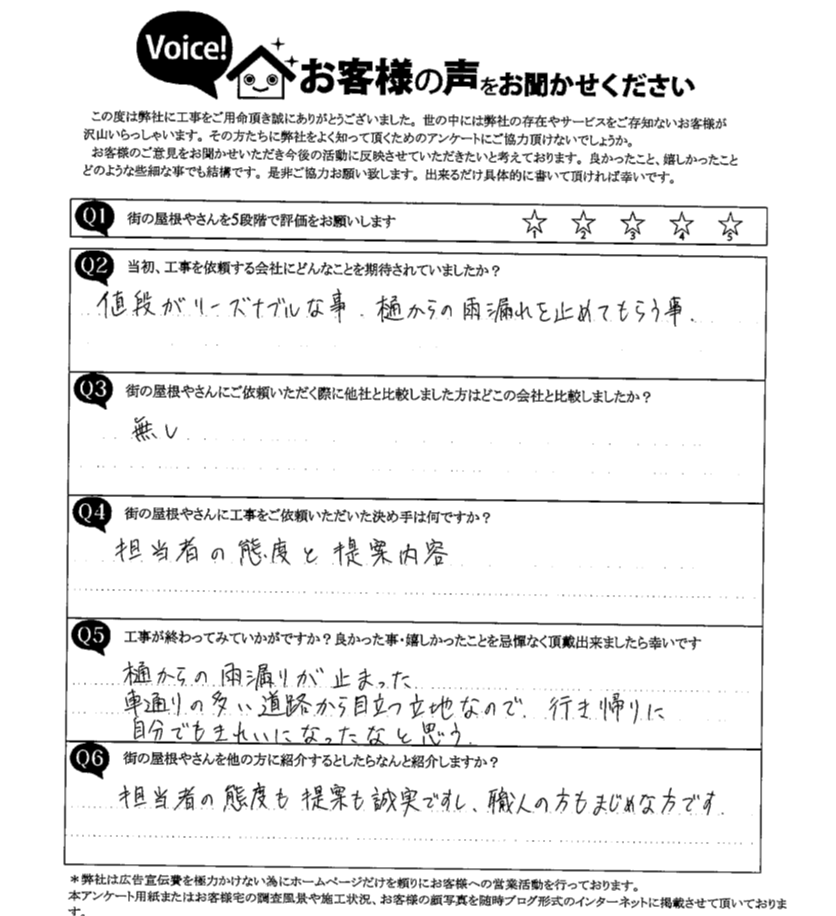 Voice!
お客様の声をお聞かせください
この度は弊社に工事をご用命頂き誠にありがとうございました。世の中には弊社の存在やサービスをご存知ないお客様が
沢山いらっしゃいます。その方たちに弊社をよく知って頂くためのアンケートにご協力頂けないでしょうか。
お客様のご意見をお聞かせいただき今後の活動に反映させていただきたいと考えております。良かったこと、嬉しかったこと
どのような些細な事でも結構です。是非ご協力お願い致します。出来るだけ具体的に書いて頂ければ幸いです。
Q1 街の屋根やさんを5段階で評価をお願いします
1 2 3 4 5
Q2 当初、工事を依頼する会社にどんなことを期待されていましたか?
値段がリーズナブルな事. 樋からの雨漏れを止めてもらう事.
Q3 街の屋根やさんにご依頼いただく際に他社と比較しました方はどこの会社と比較しましたか?
無し
Q4 街の屋根やさんに工事をご依頼いただいた決め手は何ですか?
担当者の態度と提案内容
Q5 工事が終わってみていかがですか?良かった事・嬉しかったことを忌憚なく頂戴出来ましたら幸いです
樋からの雨漏りが止まった
車通りの多い道路から目立つ立地なので、行き帰りに
自分でもきれいになったなと思う.
Q6 街の屋根やさんを他の方に紹介するとしたらなんと紹介しますか?
担当者の態度も提案も誠実ですし、職人の方もまじめな方です.
*弊社は広告宣伝費を極力かけない為にホームページだけを頼りにお客様への営業活動を行っております。
本アンケート用紙またはお客様宅の調査風景や施工状況、お客様の顔写真を随時ブログ形式のインターネットに掲載させて頂いておりま
す。